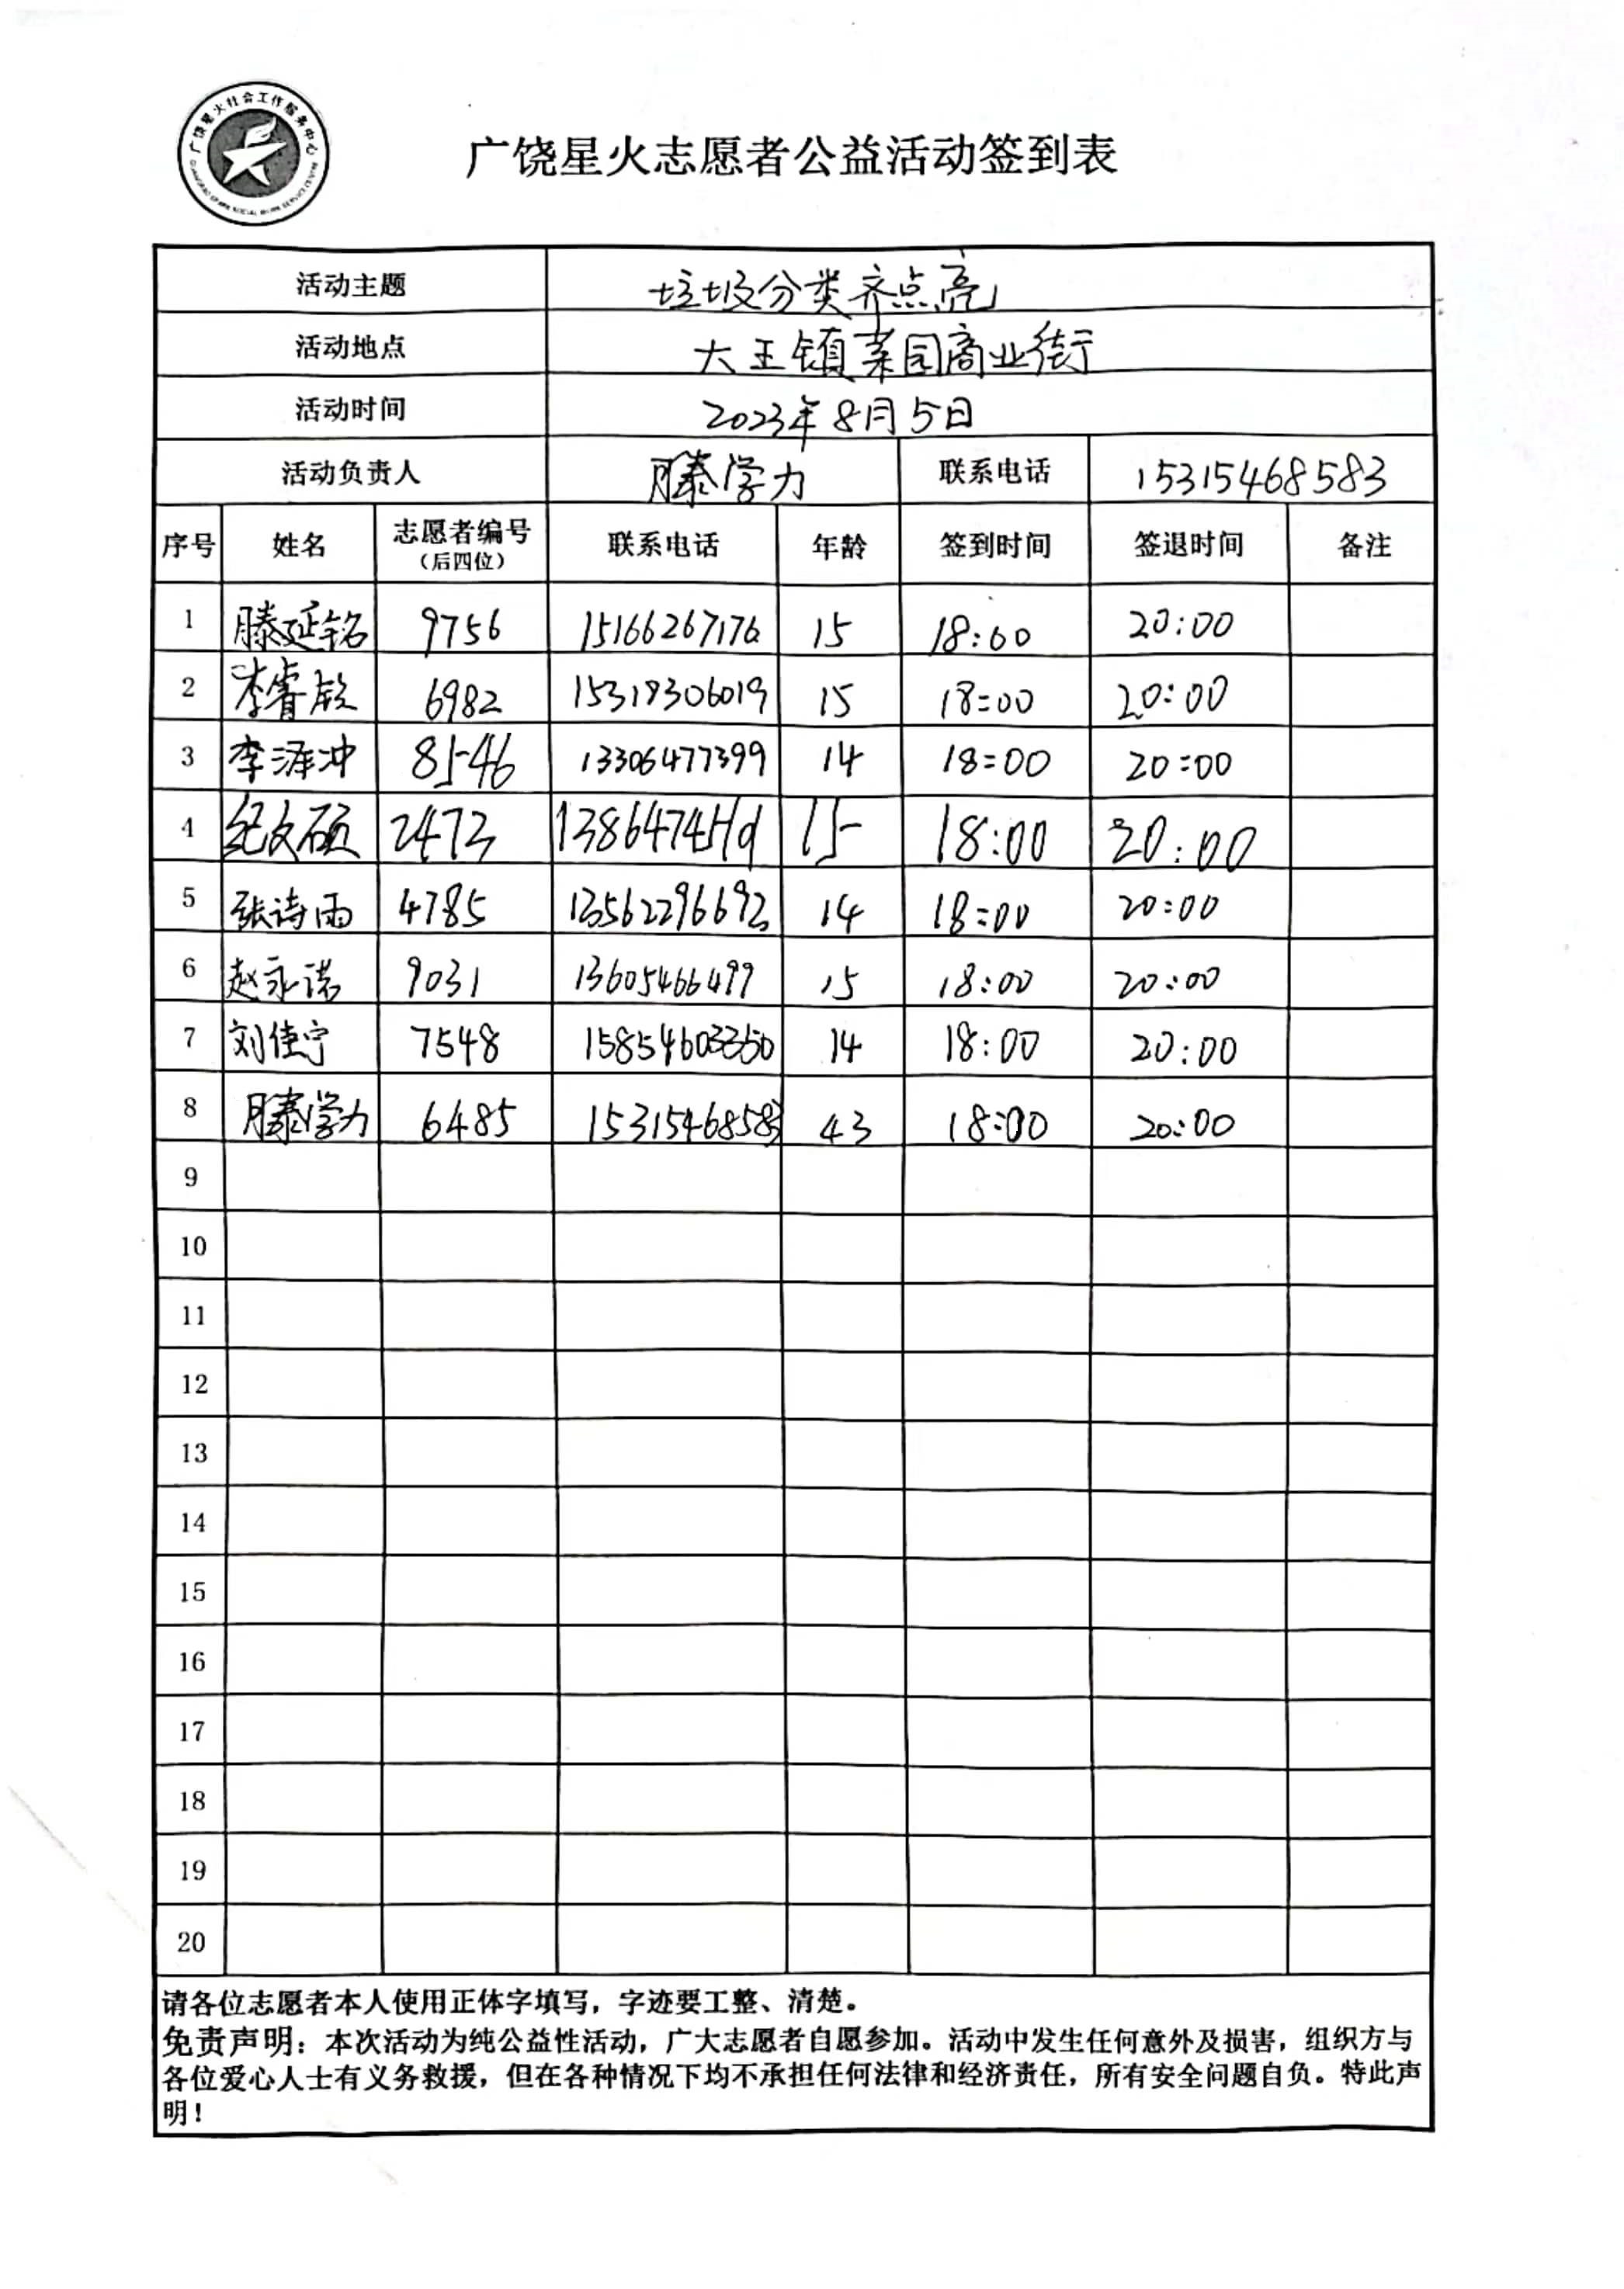 广饶星火社会工作服务中心
广饶星火志愿者公益活动签到表
活动主题 垃圾分类齐点亮
活动地点 大王镇菜园商业街
活动时间 2023年8月5日
活动负责人 滕学力 联系电话 15315468583
序号 姓名 志愿者编号（后四位） 联系电话 年龄 签到时间 签退时间 备注
1 滕延铭 9756 15166267176 15 18:00 20:00
2 李睿欣 6982 15319306019 15 18:00 20:00
3 李泽冲 8546 13306477399 14 18:00 20:00
4 纪文硕 2473 15 18:00 20:00
5 张诗雨 4785 13562296692 14 18:00 20:00
6 赵永诺 9031 13605466499 15 18:00 20:00
7 刘佳宁 7548 15854603350 14 18:00 20:00
8 滕学力 6485 15315468583 43 18:00 20:00
9
10
11
12
13
14
15
16
17
18
19
20
请各位志愿者本人使用正体字填写，字迹要工整、清楚。
免责声明：本次活动为纯公益性活动，广大志愿者自愿参加。活动中发生任何意外及损害，组织方与
各位爱心人士有义务救援，但在各种情况下均不承担任何法律和经济责任，所有安全问题自负。特此声
明！